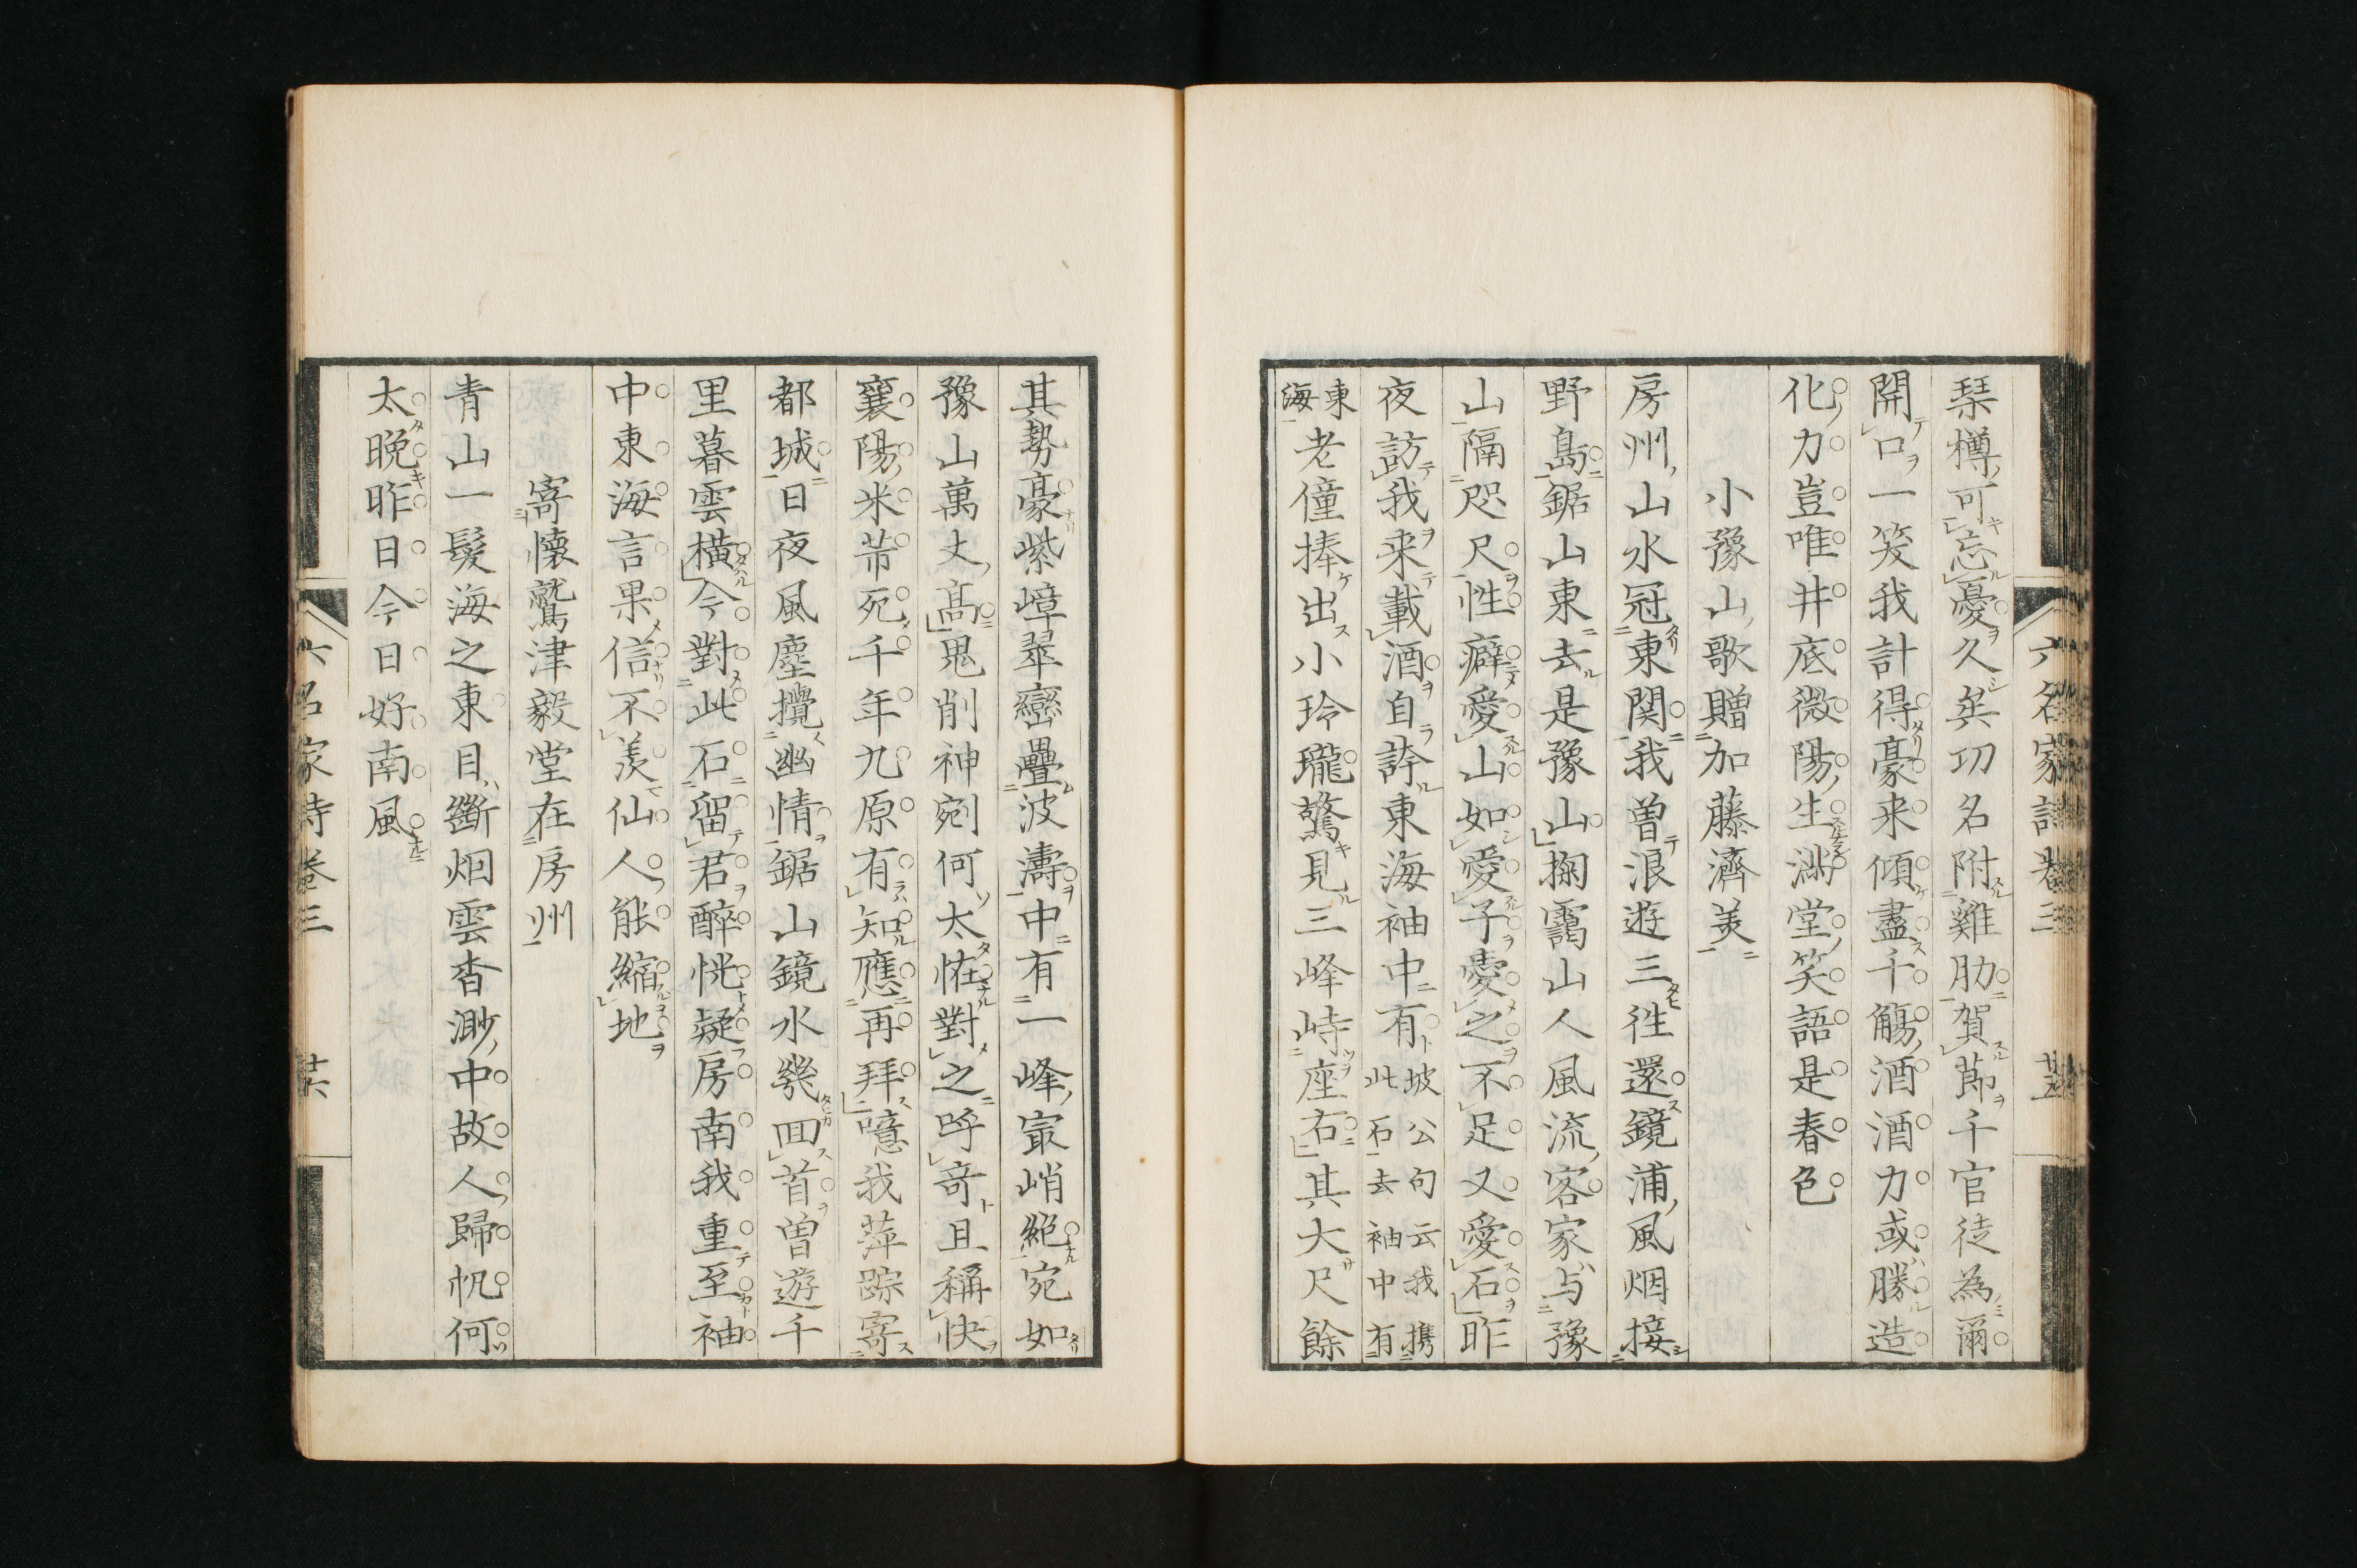 六名家詩卷三 廿五
琹樽可忘憂久矣功名附雞肋賀節千官徒為爾
開口一笑我計得豪来傾盡千觴酒酒力或勝造
化力豈唯井底微陽生滿堂笑語是春色
小豫山歌贈加藤濟美
房州山水冠東関我曽浪遊三往還鏡浦風烟接
野島鋸山東去是豫山掬靄山人風流客家与豫
山隔咫尺性癖愛山如愛子愛之不足又愛石昨
夜訪我来載酒自誇東海袖中有坡公句云我携此石去袖中有
東海老僮捧出小玲瓏驚見三峰峙座右其大尺餘
其勢豪紫嶂翠巒疊波濤中有一峰冣峭絕宛如
豫山萬丈高鬼削神剜何太恠對之呼奇且稱快
襄陽米芾死千年九原有知應再拜噫我萍踪寄
都城日夜風塵攪幽情鋸山鏡水幾回首曽遊千
里暮雲橫今對此石留君醉恍疑房南我重至袖
中東海言果信不羨仙人能縮地
寄懐鷲津毅堂在房州
青山一髮海之東目斷烟雲杳渺中故人歸帆何
太晩昨日今日好南風
六名家詩卷三 廿六